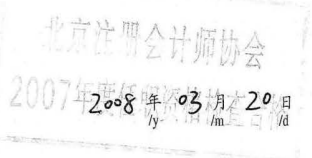 北京注册会计师协会
2007年度任职资格检查合格
2008 年 03 月 20 日
/y /m /d